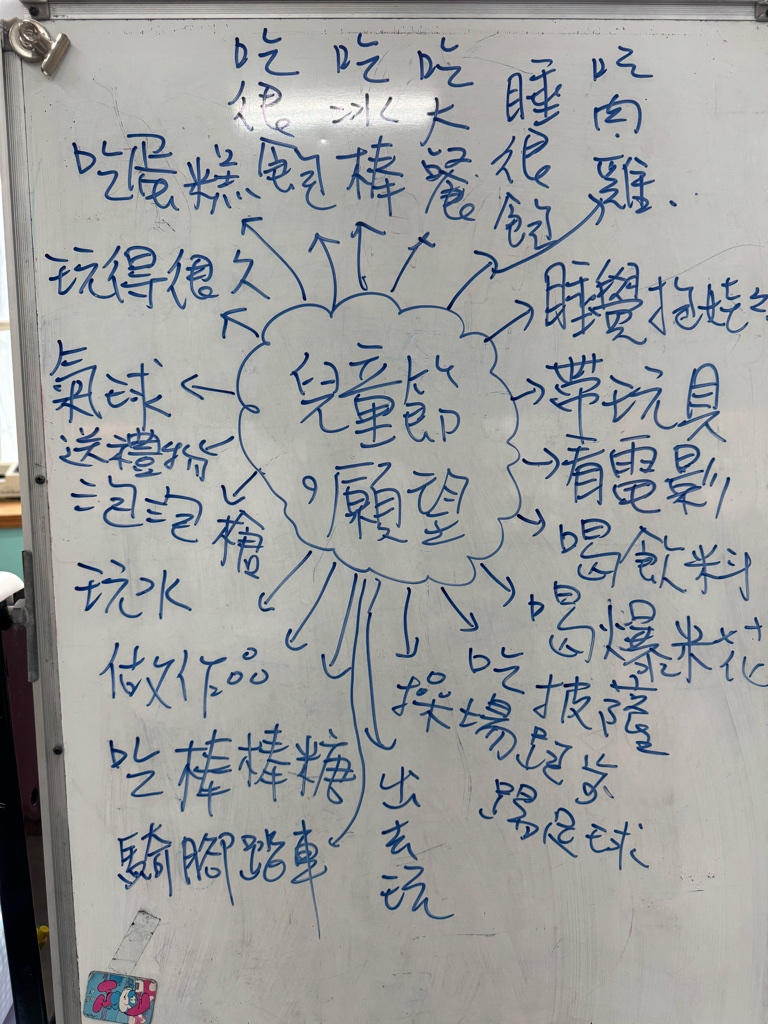 兒童節
願望
吃蛋糕
吃很飽
吃冰棒
吃大餐
睡很飽
吃肉雞.
睡覺抱
帶玩具
看電影
喝飲料
喝爆米花
吃披薩
操場跑步
踢足球
出去玩
騎腳踏車
吃棒棒糖
做作品
玩水
泡泡槍
送禮物
氣球
玩得很久